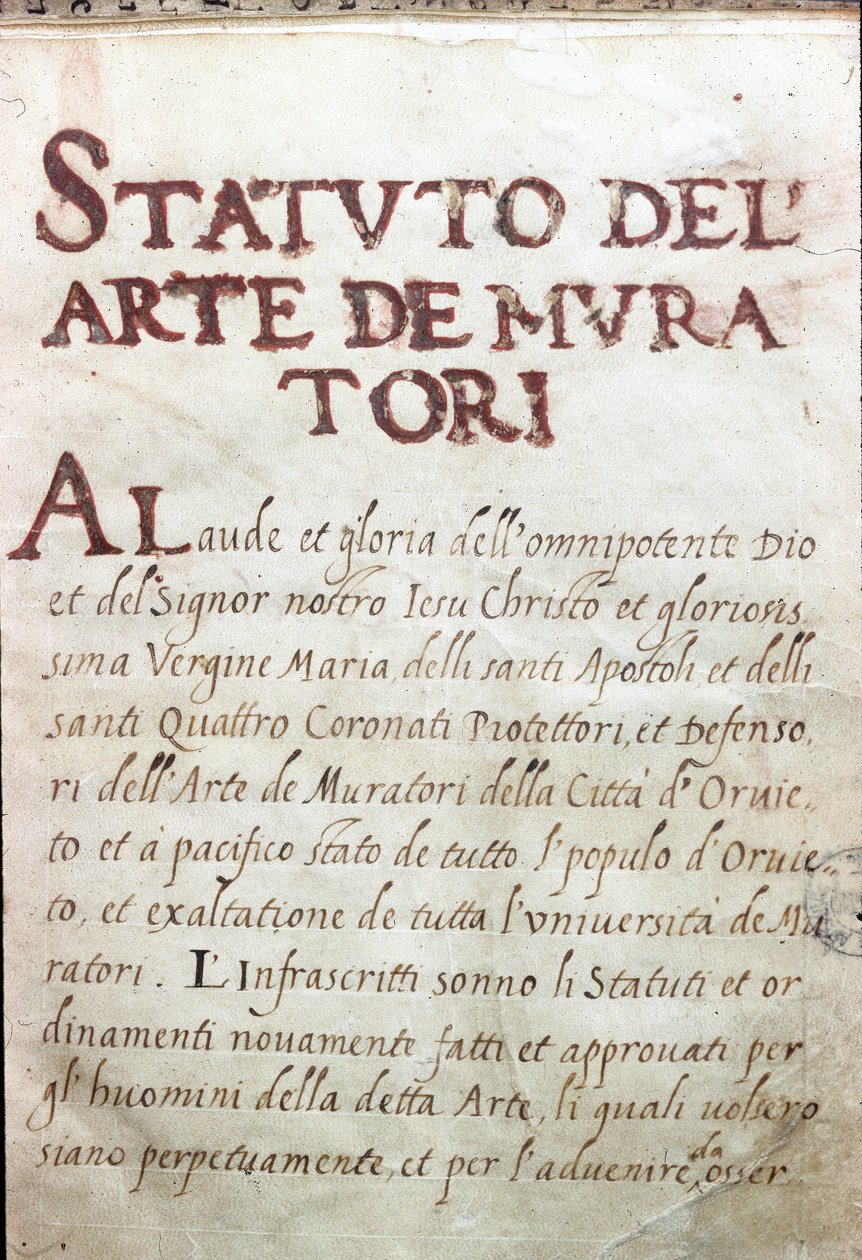 STATVTO DEL'
ARTE DE MVRA
TORI
A Laude et gloria dell'omnipotente Dio
et del Signor nostro Iesu Christo et gloriosis
sima Vergine Maria, delli santi Apostoli, et delli
santi Quattro Coronati Protettori, et Defenso,
ri dell'Arte de Muratori della Città d'Oruie,,
to et à pacifico stato de tutto l'populo d'Oruie,,
to, et exaltatione de tutta l'vniuersità de Mu
ratori. L'Infrascritti sonno li Statuti et or
dinamenti nouamente fatti et approuati per
gl'huomini della detta Arte, li quali uolsero
siano perpetuamente, et per l'aduenire da osser